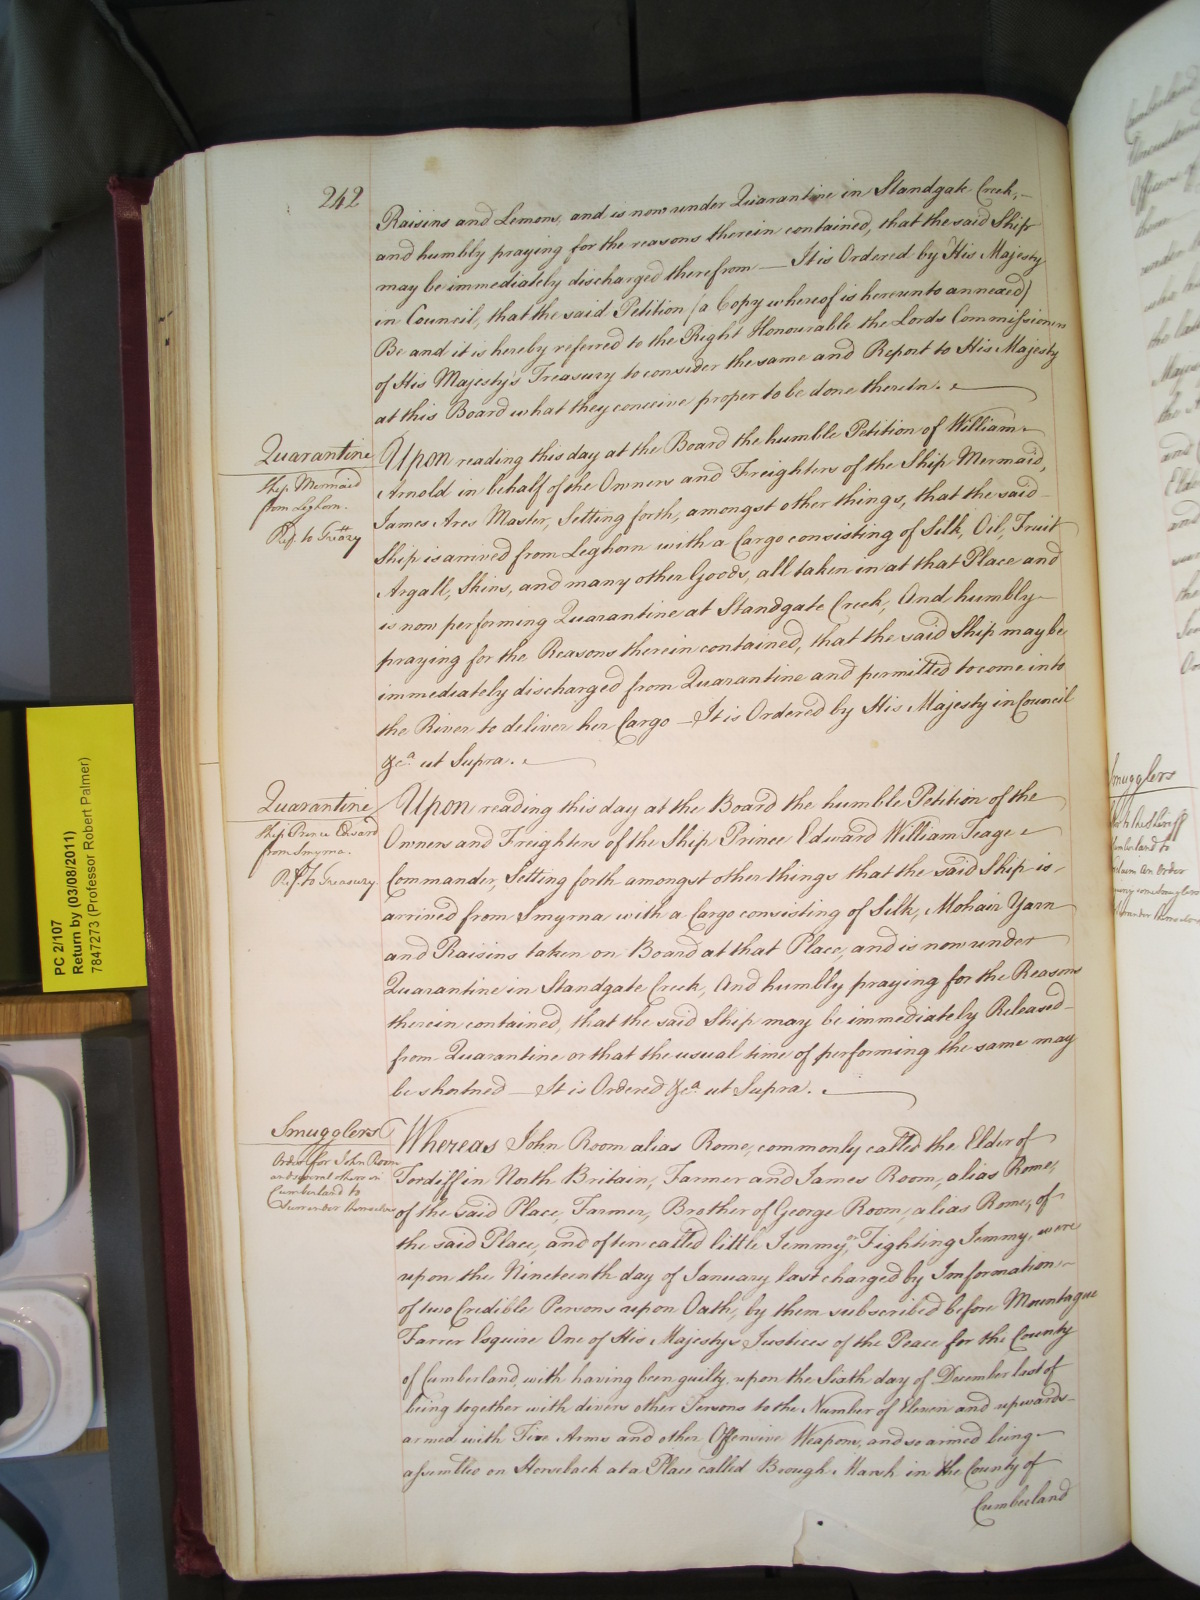 242
Raisins and Lemons, and is now under Quarantine in Standgate Creek,
and humbly praying for the reasons therein contained, that the said Ship
may be immediately discharged therefrom — It is Ordered by His Majesty
in Council, that the said Petition (a Copy whereof is hereunto annexed)
Be and it is hereby referred to the Right Honourable the Lords Commissioners
of His Majesty's Treasury to consider the same and Report to His Majesty
at this Board what they conceive proper to be done therein.
Quarantine
Ship Mermaid
from Leghorn.
Ref. to Treãry
Upon reading this day at the Board the humble Petition of William
Arnold in behalf of the Owners and Freighters of the Ship Mermaid,
James Ares Master, Setting forth, amongst other things, that the said
Ship is arrived from Leghorn with a Cargo consisting of Silk, Oil, Fruit
Argall, Skins, and many other Goods, all taken in at that Place and
is now performing Quarantine at Standgate Creek, And humbly
praying for the Reasons therein contained, that the said Ship may be
immediately discharged from Quarantine and permitted to come into
the River to deliver her Cargo — It is Ordered by His Majesty in Council
&ca. ut Supra.
Quarantine
Ship Prince Edward
from Smyrna.
Ref. to Treasury.
Upon reading this day at the Board the humble Petition of the
Owners and Freighters of the Ship Prince Edward William Teage
Commander, Setting forth amongst other things that the said Ship is
arrived from Smyrna with a Cargo consisting of Silk, Mohair Yarn
and Raisins taken on Board at that Place, and is now under
Quarantine in Standgate Creek, And humbly praying for the Reasons
therein contained, that the said Ship may be immediately Released
from Quarantine or that the usual time of performing the same may
be shortned — It is Ordered &ca. ut Supra.
Smugglers
Order for John Room
and several others in
Cumberland to
Surrender themselves
Whereas John Room alias Rome, commonly called the Elder of
Tordiff in North Britain, Farmer and James Room, alias Rome,
of the said Place, Farmer, Brother of George Room, alias Rome, of
the said Place, and often called little Jemmy, or Fighting Jemmy, were
upon the Nineteenth day of January last charged by Imformation
of two Credible Persons upon Oath, by them subscribed before Mountague
Farrer Esquire One of His Majestys Justices of the Peace for the County
of Cumberland, with having been guilty, upon the Sixth day of December last of
being together with divers other Persons to the Number of Eleven and upwards
armed with Fire Arms and other Offensive Weapons, and so armed being
assembled on Horseback at a Place called Brough Marsh in the County of
Cumberland
PC 2/107
Return by (03/08/2011)
7847273 (Professor Robert Palmer)
Smugglers